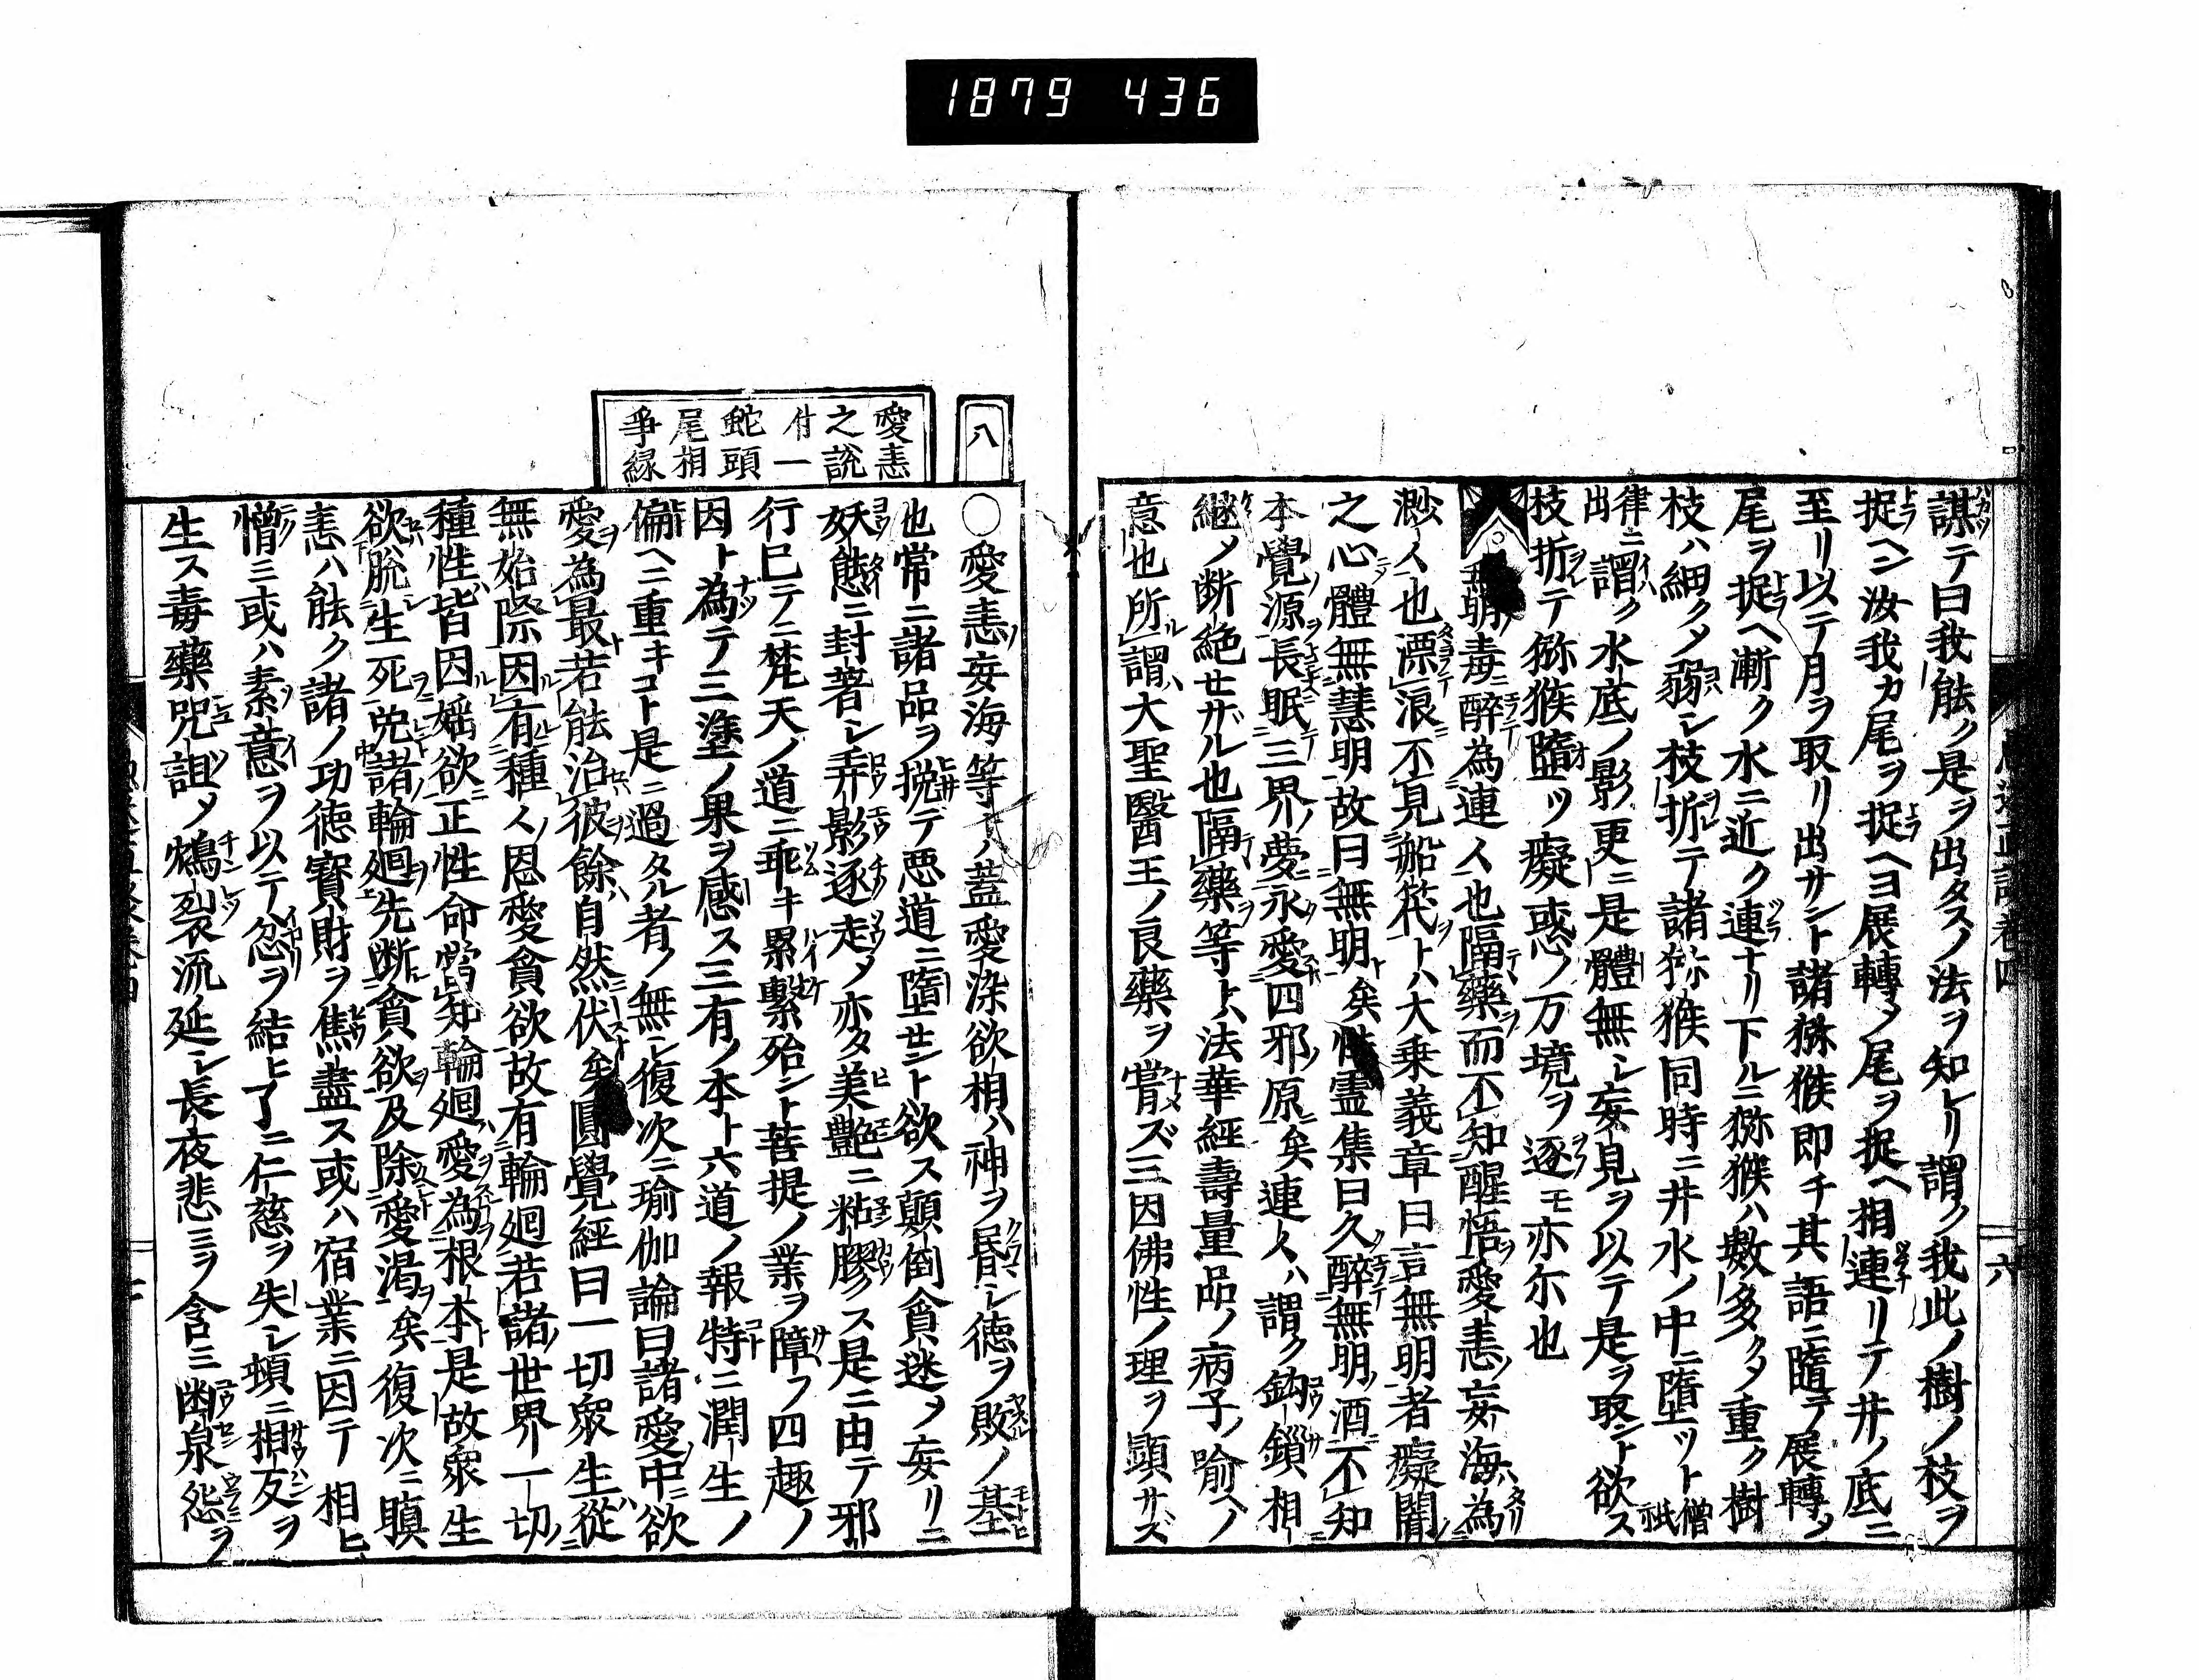 1879 436
謀テ曰我能ク是ヲ出タスノ法ヲ知レリ謂ク我此ノ樹ノ枝ヲ
捉ヘン汝我カ尾ヲ捉ヘヨ展轉メ尾ヲ捉ヘ相連リテ井ノ底ニ
至リ以テ月ヲ取リ出サント諸猕猴即チ其語ニ隨テ展轉メ
尾ヲ捉ヘ漸ク水ニ近ク連ナリ下ルニ猕猴ハ數多クメ重ク樹
枝ハ細クメ弱シ枝折テ諸猕猴同時ニ井水ノ中ニ墮ツト僧祇
律ニ出謂ク水底ノ影更ニ是體無シ妄見ヲ以テ是ヲ取ント欲ス
枝折テ猕猴墮ツ癡惑ノ万境ヲ逐モ亦尓也
無明ノ毒ニ醉為連〻也隔藥而不知醒悟愛恚ノ妄海ハ為
渺〻也漂浪不見船筏トハ大乗義章曰言無明者癡闇
之心體無慧明故曰無明矣性霊集曰久醉無明ノ酒不知
本覺源長眠三界ノ夢永愛四邪ノ原矣連〻ハ謂ク鈎鎖相
継メ断絶セザル也隔藥等トハ法華經壽量品ノ病子ノ喩ヘノ
意也所謂大聖醫王ノ良藥ヲ甞ズ三因佛性ノ理ヲ顕サズ
八
愛恚
之説
付一
蛇頭
尾相
爭縁
○愛恚ノ妄海等ノ蓋愛染欲相ハ神ヲ昬シ徳ヲ敗ノ基
也常ニ諸品ヲ挽テ悪道ニ墮セント欲ス顛倒貪迷メ妄リニ
妖態ニ封著シ弄影逐走メ亦タ美艶ニ粘膠ス是ニ由テ邪
行已テニ梵天ノ道ニ乖キ累繋殆ント菩提ノ業ヲ障フ四趣ノ
因ト為テ三塗ノ果ヲ感ス三有ノ本ト六道ノ報特ニ潤生ノ
偏ヘニ重キコト是ニ過タル者ノ無シ復次ニ瑜伽論曰諸愛中ニ欲
愛為最若能治彼餘ハ自然伏矣圓覺經曰一切衆生從
無始際因有種〻ノ恩愛貪欲故有輪廻若諸世界一切ノ
種性皆因婬欲正性命當知輪廻愛為根本是故衆生
欲脱生死免諸輪廻先断貪欲及除愛渇矣復次ニ瞋
恚ハ能ク諸ノ功徳寳財ヲ焦盡ス或ハ宿業ニ因テ相ヒ
憎ミ或ハ素意ヲ以テ忿ヲ結ヒ了ニ仁慈ヲ失シ頓ニ相反ヲ
生ス毒藥咒詛メ鴆裂流延シ長夜悲ミヲ含ミ幽泉怨ヲ